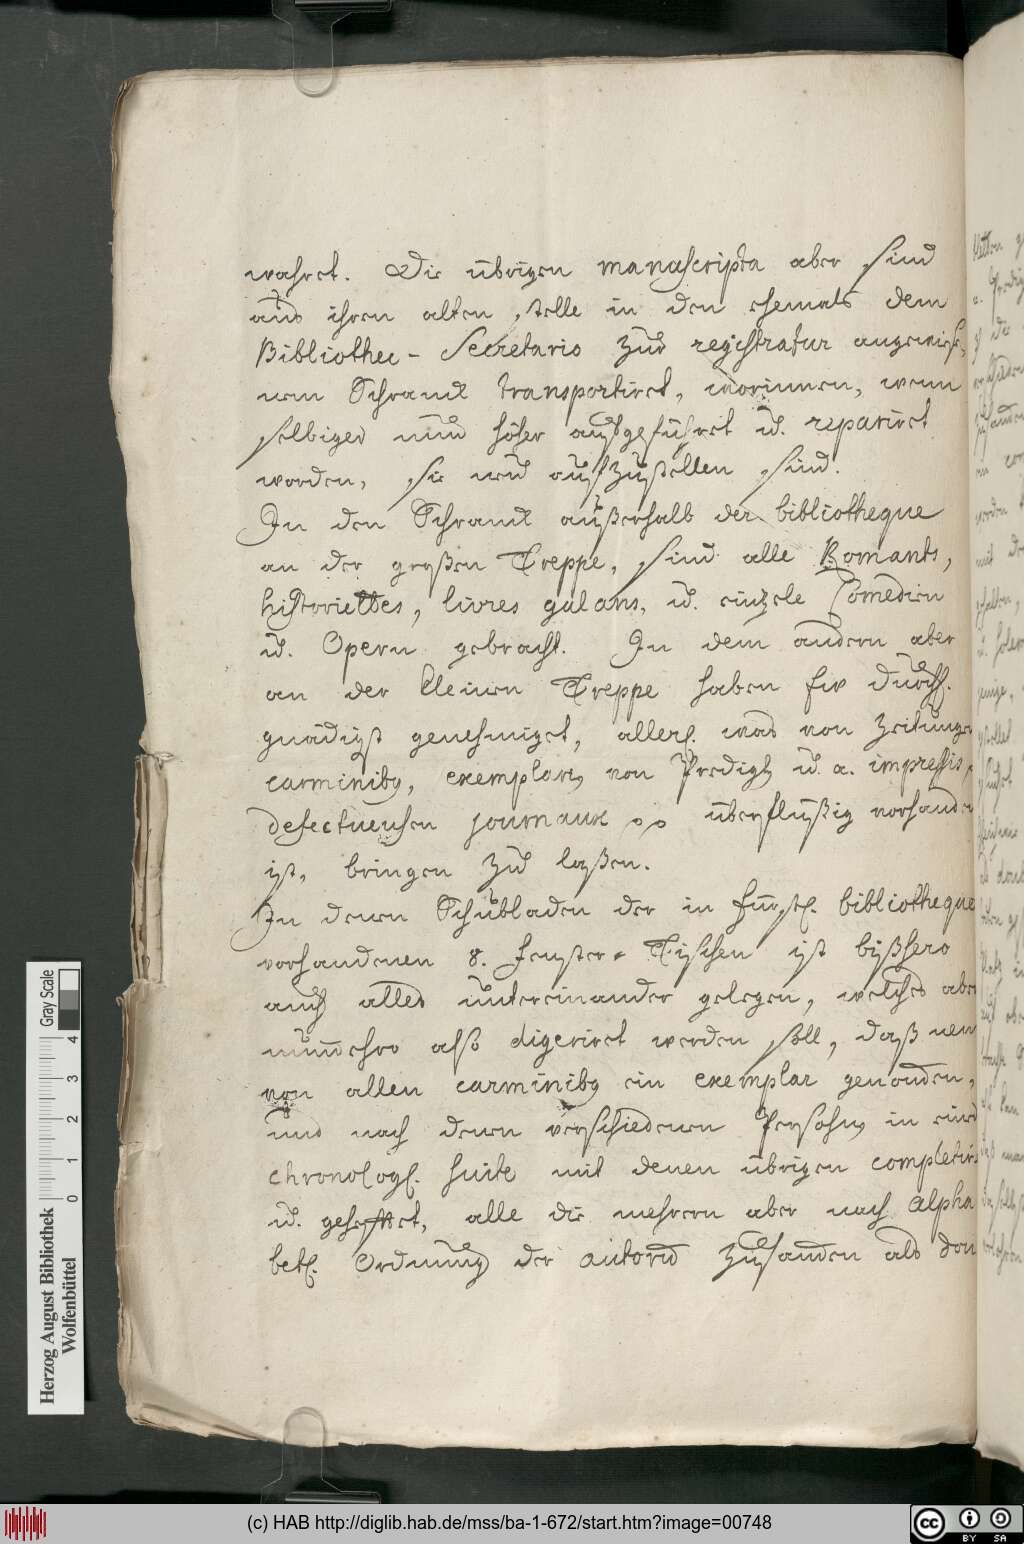 wahret. Die übrigen manuscripta aber sind
aus ihren alten stelle in den ehemals dem
Bibliothec- Secretario zur registratur angewiese-
nen Schranck transportiret, worinnen, wenn
selbiges nun höher aufgeführet u. repariret
worden, sie neu aufzustellen sind.
In den Schranck außerhalb der bibliotheque
an der großen Treppe, sind alle Romants,
historiettes, livres galans, u. einzele Comedien
u. Opern gebracht. In dem andern aber
an der kleinen Treppe haben Ew Durchl.
gnädigst genehmiget, allerl. was von Zeitungen
carminibg, exemplarn von Predigt u. a. impressis,
defectueusen journaux überflüßig vorhanden
ist, bringen zu laßen.
In denen Schubladen der in fürstl. bibliotheque
vorhandenen 8. Fenster-Tischen ist bißhero
auch alles untereinander gelegen, welches aber
nunmehro also digeriret werden soll, daß nem
von allen carminibg ein exemplar genomen,
und nach denen verschiedenen Persohn in eine
chronologl. suite mit denen übrigen completirt
u. geheftet, alle die mehrern aber nach Alpha
betl. Ordnung der autorum zusamen als dou
Herzog August Bibliothek
Wolfenbüttel
Gray Scale
0 1 2 3 4
(c) HAB http://diglib.hab.de/mss/ba-1-672/start.htm?image=00748
cc BY SA